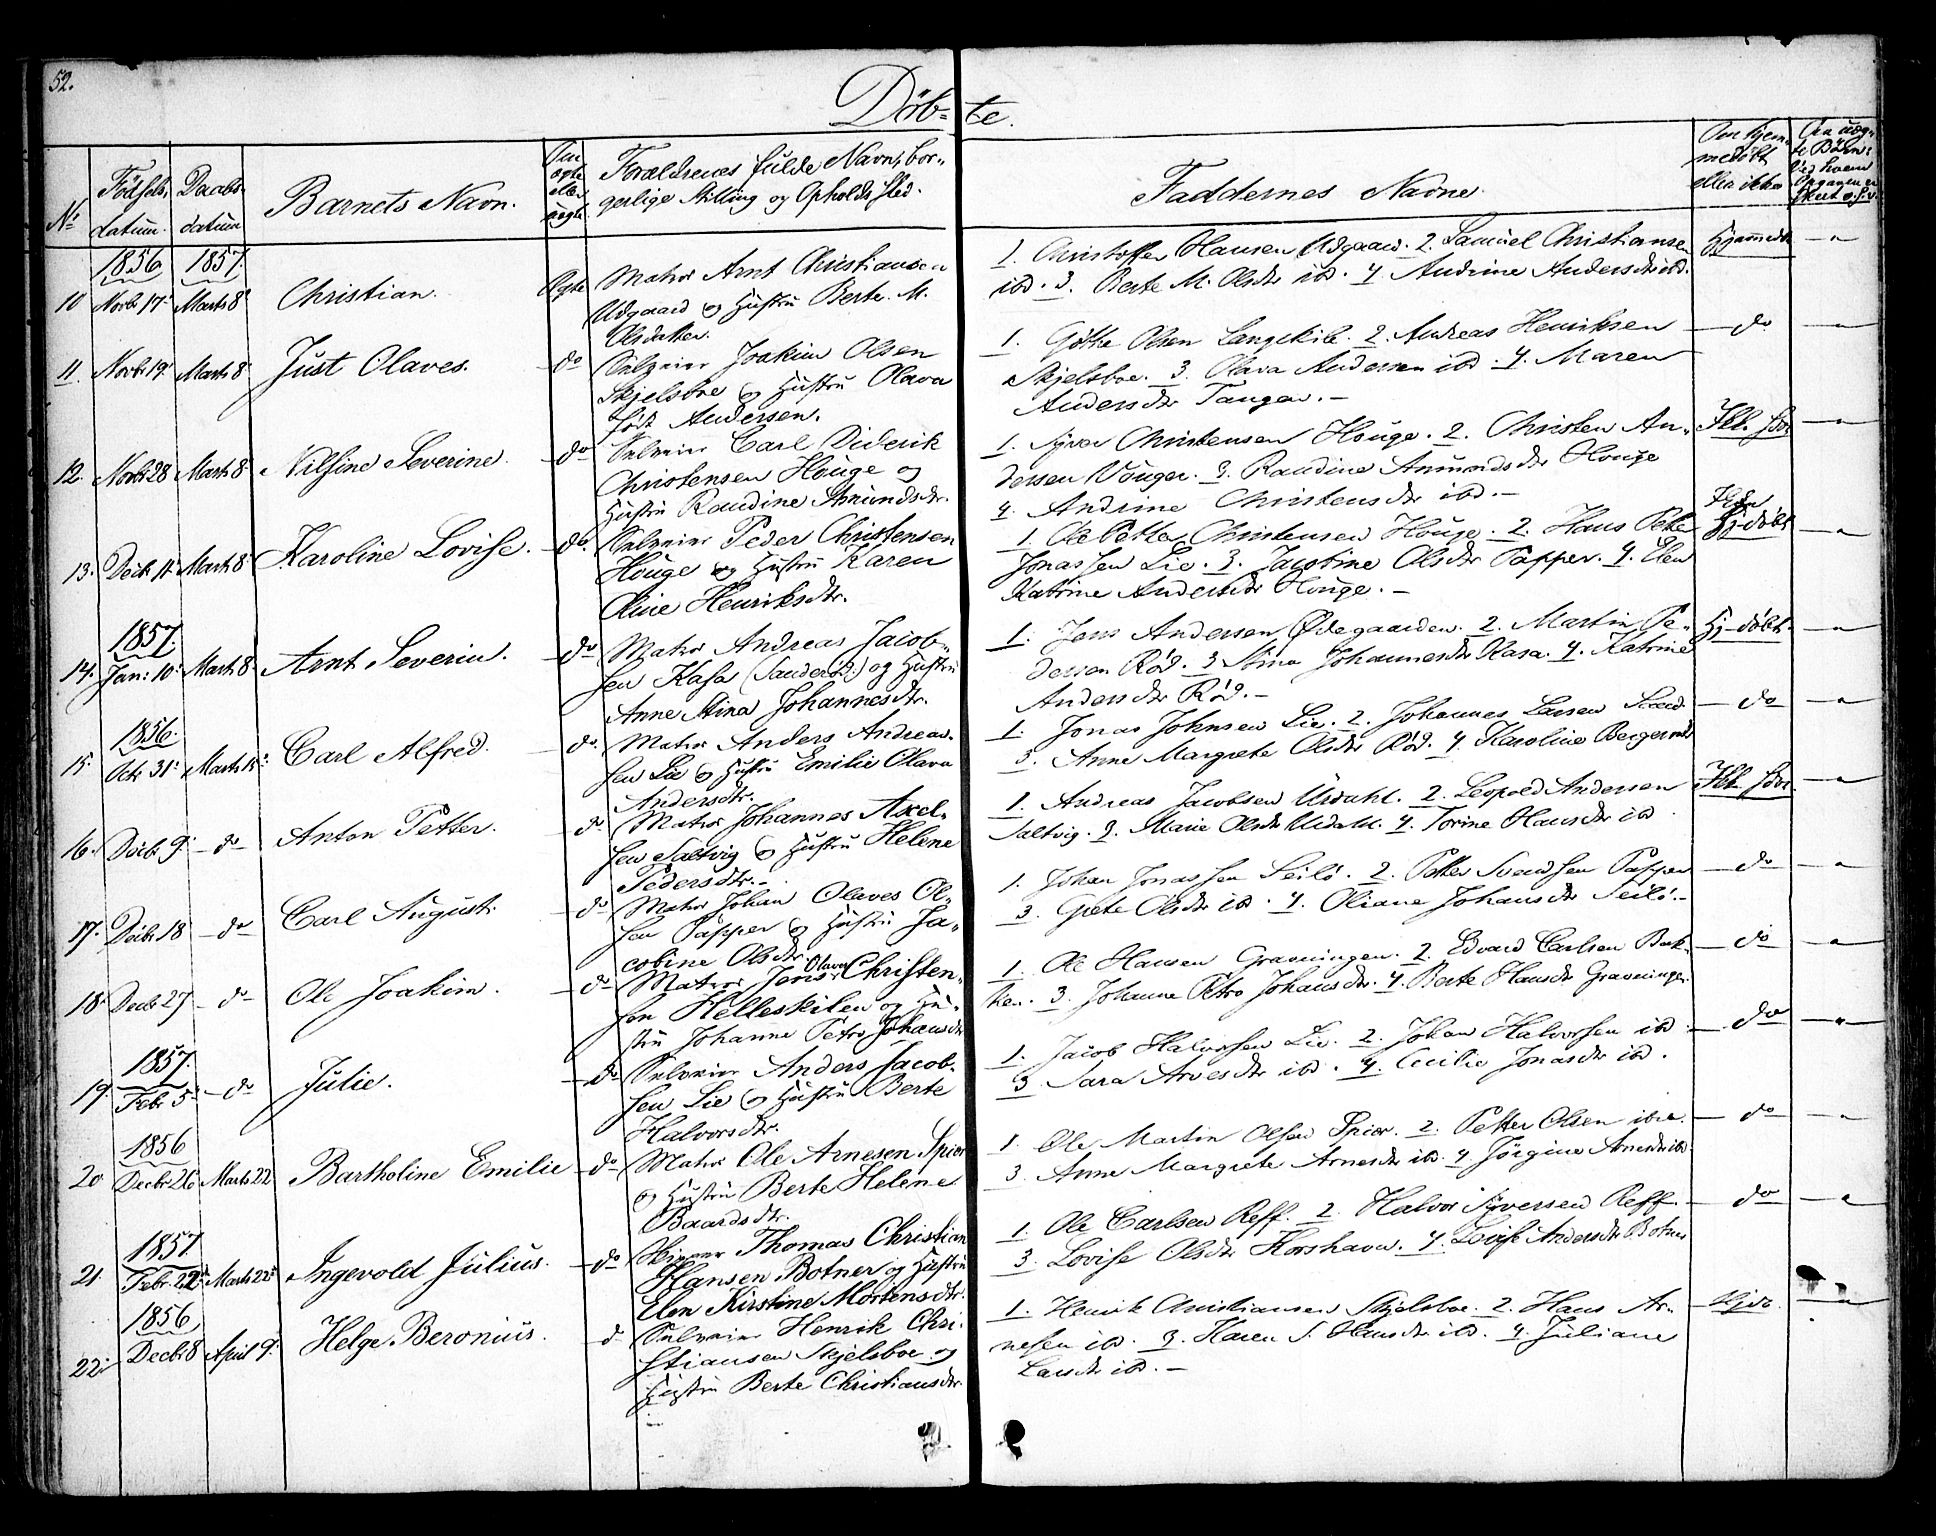 52.
Døb-te.
No
Fødsels-datum.
Daabs-datum
Barnets Navn.
Om ægte eller uægte
Forældrenes fulde Navn, bor-
gerlige Stilling og Opholdssted.
Faddernes Navne.
Om hjem-
medøbt
eller ikke
1856 1857.
10 Novbr 17. Marts 8 Christian. Ægte Matros Arnt Christiansen
Udgaard og Hustru Berte M.
Olsdatter.
1. Christoffer Hansen Udgaard. 2. Samuel Christiansen
ibd. 3. Berte M. Olsdtr ibd. 4. Andrine Andersdtr ibd.
Hjemmedøbt
11 Novbr 19. Marts 8 Just Olaves. do Selveier Joakim Olsen
Skjelsboe og Hustru Olava
født Andersen.
1. Gøthe Olsen Langekile. 2. Andreas Henriksen
Skjelsboe. 3. Olava Andersen ibd. 4. Maren
Andersdtr Tangen. —
do
12. Novbr 28 Marts 8 Nilsine Severine. do Selveier Carl Diderik
Christensen Houge og
Hustru Randine Amundsdtr.
1. Syver Christensen Houge. 2. Christen An-
dersen Vouger. 3. Randine Amundsdtr Houge
4. Andrine Christensdtr ibd. —
13. Decbr 11. Marts 8. Karoline Lovise. do. Selveier Peder Christensen
Houge og Hustru Karen
Oline Henriksdtr.
1. Ole Petter Christensen Houge. 2. Hans Petter
Jonassen Lie. 3. Jacobine Olsdtr Papper. 4. Elen
Katrine Andersdtr Houge. —
Hj-døbt
1857.
14. Jan: 10: Marts 8 Arnt Severin. do Matros Andreas Jacob-
sen Kasa og Hustru
Anne Stina Johannesdtr.
1. Jens Andersen Ødegaarden. 2. Martin Pe-
dersen Rød. 3 Stina Johannesdtr Kasa. 4. Katrine
Andersdtr Rød. —
Hj-døbt.
1856.
15. Octr 31: Marts 15: Carl Alfred. do. Matros Anders Andreas-
sen Lie og Hustru Emilie Olava
Andersdtr.
1. Jonas Johnsen Lie. 2. Johannes Larsen
3. Anne Margrete Olsdtr Rød. 4. Karoline
do
16. Decbr 9. do Anton Petter. do Matros Johannes Axel-
sen Saltvig og Hustru Helene
Pedersdtr. —
1. Andreas Jacobsen Urdahl. 2. Leopold Andersen
Saltvig. 3. Marie Olsdtr Urdahl. 4. Torine Hansdtr ibd.
17. Decbr 18 do Carl August. do Matros Johan Olaves Ol-
sen Papper og Hustru Ja-
cobine Olsdtr.
1. Johan Jonassen Seilø. 2. Petter Svendsen Papper
3. Grete Olsdtr ibd. 4. Oliane Johansdtr Seilø. —
do
18. Decbr 27 do Ole Joakim. do Matros Jens Olaves Christen-
sen Helleskilen og Hu-
stru Johanne Petra Johansdtr
1. Ole Hansen Graveningen. 2. Edvard Carlsen Bak-
ken. 3. Johanne Petra Johansdtr. 4. Berte Hansdtr Graveningen.
do
1857.
19. Febr 5: do Julie. do Selveier Anders Jacob-
sen Lie og Hustru Berte
Halvorsdtr.
1. Jacob Halvorsen Lie. 2. Johan Halvorsen ibd
3. Sara Arvesdtr ibd. 4. Cecilie Jonasdtr ibd.
do
1856
20 Decbr 26 Marts 22 Bartholine Emilie do Matros Ole Arnesen Spior
og Hustru Berte Helene
Baardsdtr.
1. Ole Martin Olsen Spior. 2. Petter Olsen ibid.
3. Anne Margrete Arnesdtr ibd. 4. Jørgine Arnesdtr ibd.
do
1857
21. Febr. 22 Marts 22 Ingevold Julius. do Thomas Christian
Hansen Botner og Hustru
Elen Kirstine Mortensdtr.
1. Ole Carlsen Reff. 2. Halvor Syversen Reff.
3. Lovise Olsdtr Korshavn. 4. Lovise Andersdtr Botner
do
1856
22. Decbr 8 April 9. Helge Beronius. do Selveier Henrik Chri-
stiansen Skjelsboe og
Hustru Berte Christiansdtr.
1. Henrik Christiansen Skjelsboe. 2. Hans Ar-
nesen ibd. 3. Karen S. Hansdtr ibd. 4. Juliane
Larsdtr ibd. —